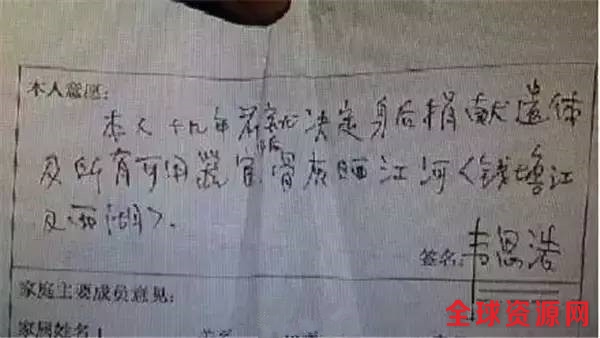 本人意愿:
本人十几年前就决定身后捐献遗体
及所有可用器官骨灰洒江河〈钱塘江
及西湖〉.
签名:韦思浩
家庭主要成员意见:
家属姓名
全球资源网